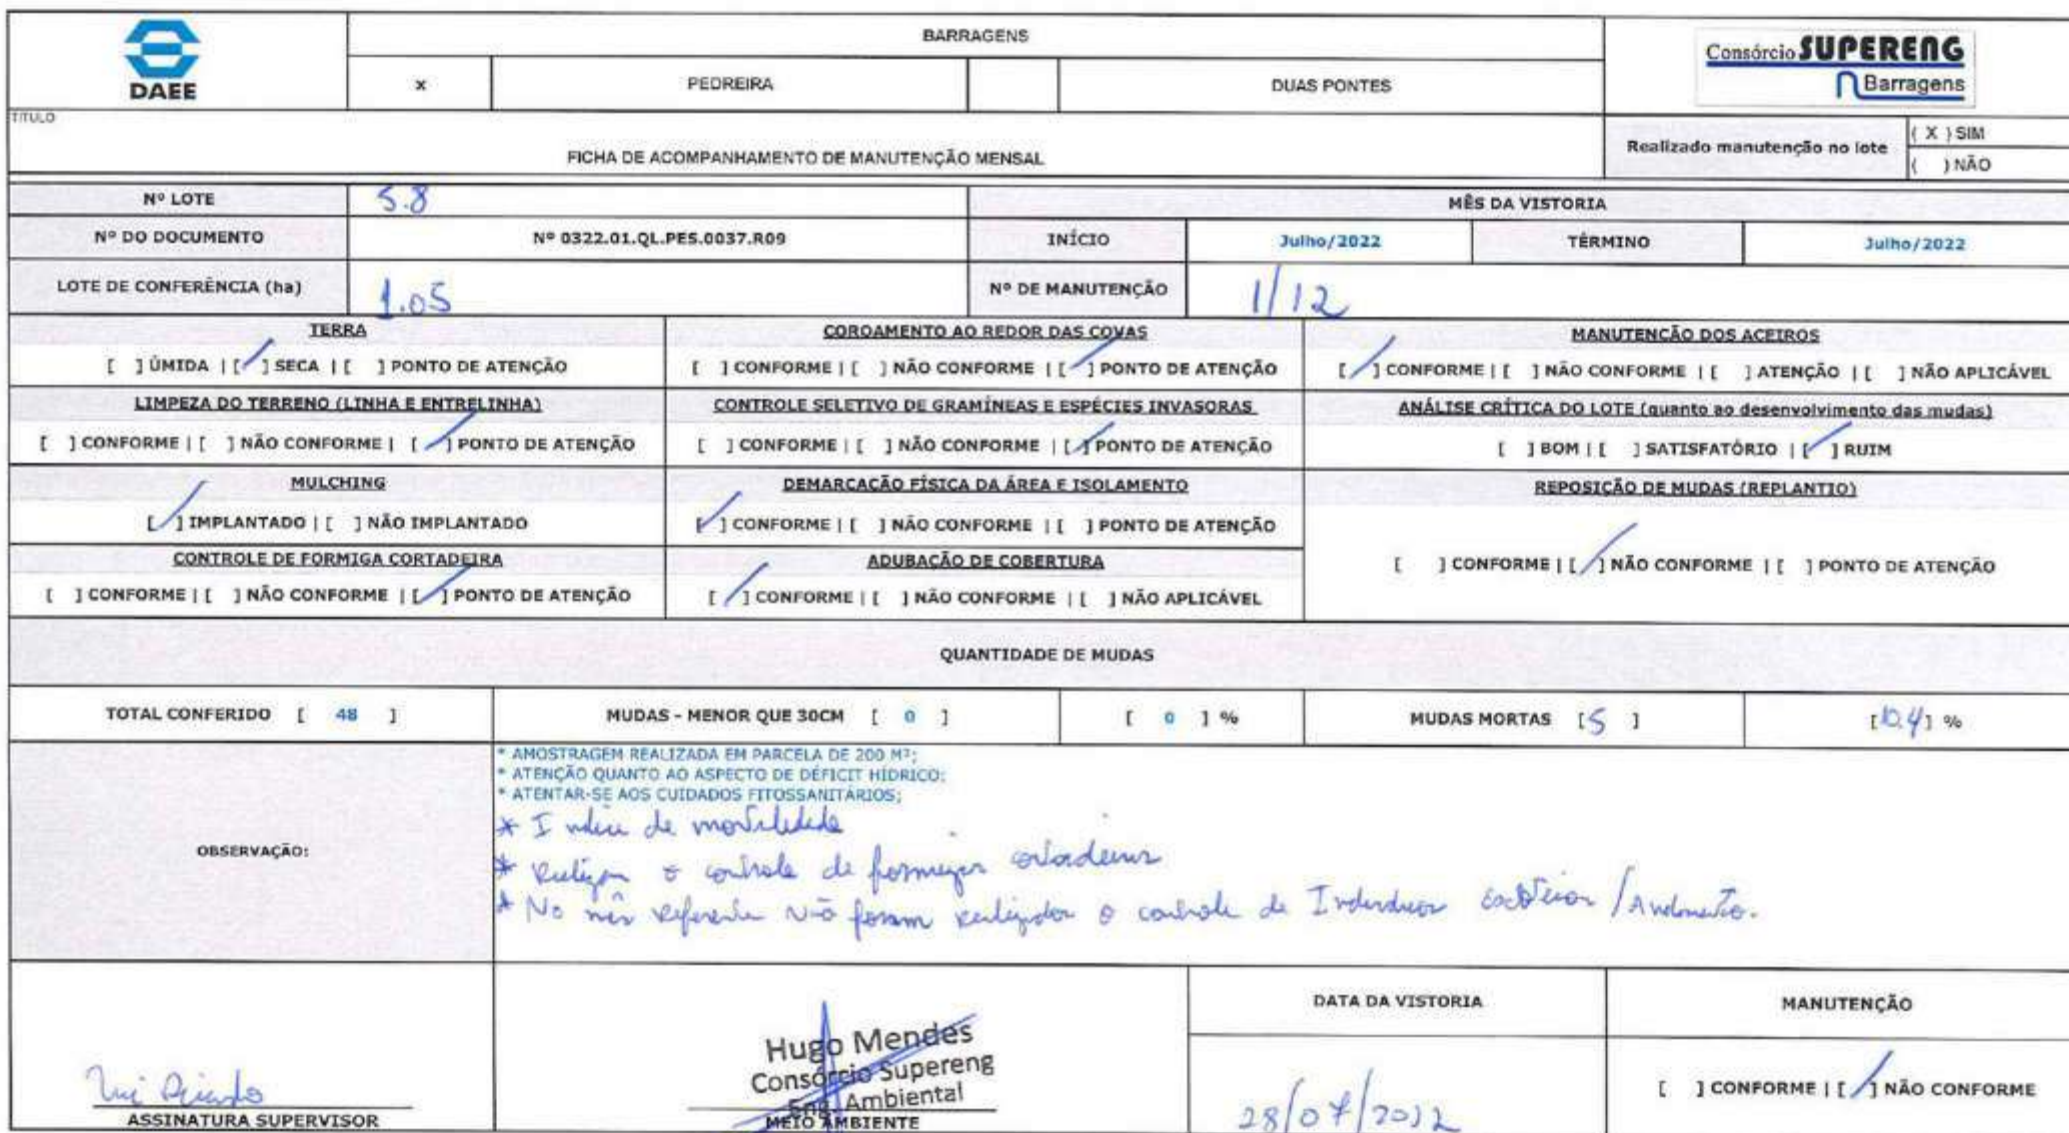 DAEE
BARRAGENS
x PEDREIRA DUAS PONTES
Consórcio SUPERENG
Barragens
TÍTULO
FICHA DE ACOMPANHAMENTO DE MANUTENÇÃO MENSAL
Realizado manutenção no lote
( X ) SIM
( ) NÃO
Nº LOTE 5.8
MÊS DA VISTORIA
Nº DO DOCUMENTO Nº 0322.01.QL.PES.0037.R09 INÍCIO Julho/2022 TÉRMINO Julho/2022
LOTE DE CONFERÊNCIA (ha) 1.05 Nº DE MANUTENÇÃO 1/12
TERRA
[ ] ÚMIDA | [/] SECA | [ ] PONTO DE ATENÇÃO
COROAMENTO AO REDOR DAS COVAS
[ ] CONFORME | [ ] NÃO CONFORME | [/] PONTO DE ATENÇÃO
MANUTENÇÃO DOS ACEIROS
[/] CONFORME | [ ] NÃO CONFORME | [ ] ATENÇÃO | [ ] NÃO APLICÁVEL
LIMPEZA DO TERRENO (LINHA E ENTRELINHA)
[ ] CONFORME | [ ] NÃO CONFORME | [/] PONTO DE ATENÇÃO
CONTROLE SELETIVO DE GRAMÍNEAS E ESPÉCIES INVASORAS
[ ] CONFORME | [ ] NÃO CONFORME | [/] PONTO DE ATENÇÃO
ANÁLISE CRÍTICA DO LOTE (quanto ao desenvolvimento das mudas)
[ ] BOM | [ ] SATISFATÓRIO | [/] RUIM
MULCHING
[/] IMPLANTADO | [ ] NÃO IMPLANTADO
DEMARCAÇÃO FÍSICA DA ÁREA E ISOLAMENTO
[/] CONFORME | [ ] NÃO CONFORME | [ ] PONTO DE ATENÇÃO
REPOSIÇÃO DE MUDAS (REPLANTIO)
[ ] CONFORME | [/] NÃO CONFORME | [ ] PONTO DE ATENÇÃO
CONTROLE DE FORMIGA CORTADEIRA
[ ] CONFORME | [ ] NÃO CONFORME | [/] PONTO DE ATENÇÃO
ADUBAÇÃO DE COBERTURA
[/] CONFORME | [ ] NÃO CONFORME | [ ] NÃO APLICÁVEL
QUANTIDADE DE MUDAS
TOTAL CONFERIDO [ 48 ] MUDAS - MENOR QUE 30CM [ 0 ] [ 0 ] % MUDAS MORTAS [ 5 ] [ 10.4 ] %
OBSERVAÇÃO:
* AMOSTRAGEM REALIZADA EM PARCELA DE 200 M²;
* ATENÇÃO QUANTO AO ASPECTO DE DÉFICIT HÍDRICO;
* ATENTAR-SE AOS CUIDADOS FITOSSANITÁRIOS;
* Indice de mortalidade
* Realizar o controle de formigas cortadeiras
* No mês referente não foram realizados o controle de Individuos /
ASSINATURA SUPERVISOR
Hugo Mendes
Consórcio Supereng
Eng. Ambiental
MEIO AMBIENTE
DATA DA VISTORIA
28/07/2022
MANUTENÇÃO
[ ] CONFORME | [/] NÃO CONFORME